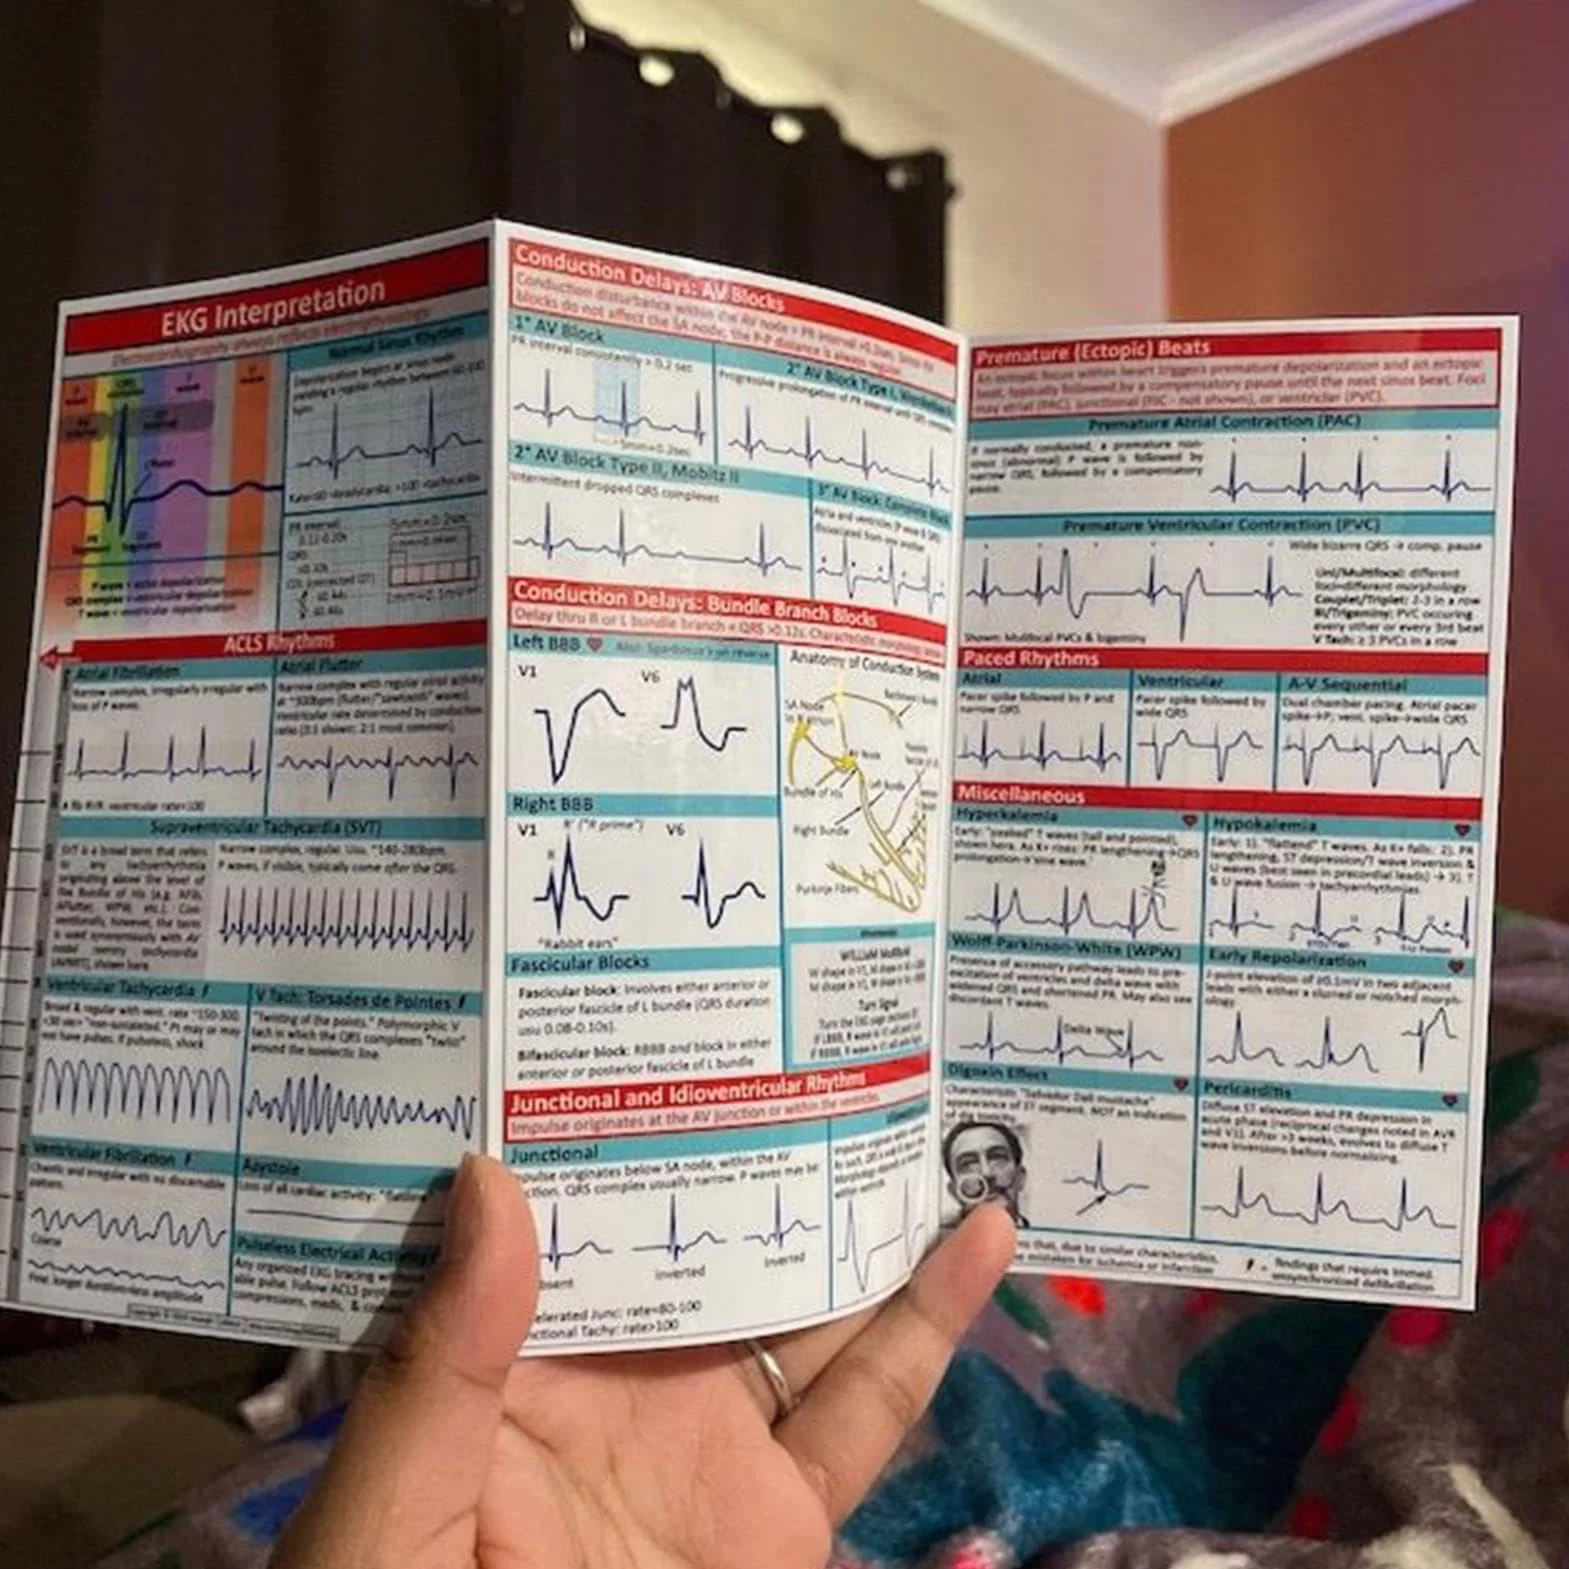 EKG Interpretation
Normal Sinus Rhythm
PR Interval
ACLS Rhythms
Atrial Fibrillation
Narrow complex, irregularly irregular with
loss of P waves.
Atrial Flutter
Narrow complex with regular atrial activity
at ~300bpm (flutter/"sawtooth" waves).
Ventricular rate determined by conduction
ratio (3:1 shown; 2:1 most common).
Supraventricular Tachycardia (SVT)
SVT is a broad term that refers
to any tachyarrhythmia
originating above the level of
the Bundle of His
Narrow complex, regular. Usu. ~140-280bpm.
P waves, if visible, typically come after the QRS.
Ventricular Tachycardia
Broad & regular with vent. rate ~150-300.
<30 sec= "non-sustained." Pt may or may
not have pulses. If pulseless, shock
V Tach: Torsades de Pointes
"Twisting of the points." Polymorphic V
tach in which the QRS complexes "twist"
around the isoelectric line.
Ventricular Fibrillation
Chaotic and irregular with no discernable
pattern.
Coarse
Fine: longer duration=less amplitude
Asystole
Loss of all cardiac activity: "flatline"
Pulseless Electrical Activity
Any organized EKG tracing without
able pulse. Follow ACLS
compressions, meds, &
Conduction Delays: AV Blocks
Conduction disturbance within the AV node = PR interval >0.2sec. Since AV
blocks do not affect the SA node, the P-P distance is always regular.
1° AV Block
PR interval consistently > 0.2 sec
5mm=0.2sec
2° AV Block Type I,
Progressive prolongation of PR interval until QRS
2° AV Block Type II, Mobitz II
Intermittent dropped QRS complexes
3° AV Block: Complete Block
Atria and ventricles
dissociated from one another
Conduction Delays: Bundle Branch Blocks
Delay thru R or L bundle branch = QRS >0.12s. Characteristic
Left BBB
on reverse
V1
V6
Right BBB
V1
R' ("R prime")
V6
R
"Rabbit ears"
Anatomy of Conduction System
SA Node
AV Node
Bundle of His
Left Bundle
Right Bundle
Purkinje Fibers
Fascicular Blocks
Fascicular block: Involves either anterior or
posterior fascicle of L bundle (QRS duration
usu 0.08-0.10s).
Bifascicular block: RBBB and block in either
anterior or posterior fascicle of L bundle
WiLLiaM MoRRoW
Turn Signal
Junctional and Idioventricular Rhythms
Impulse originates at the AV junction or within the ventricles
Junctional
pulse originates below SA node, within the AV
ction. QRS complex usually narrow. P waves may be:
bsent
Inverted
Inverted
elerated Junc: rate=60-100
ctional Tachy: rate>100
Premature (Ectopic) Beats
An ectopic focus within heart triggers premature depolarization and an ectopic
beat, typically followed by a compensatory pause until the next sinus beat. Foci
may atrial (PAC), junctional (PJC - not shown), or ventricular (PVC).
Premature Atrial Contraction (PAC)
If normally conducted, a premature non-
sinus (abnormal) P wave is followed by
narrow QRS, followed by a compensatory
pause.
Premature Ventricular Contraction (PVC)
Wide bizarre QRS → comp. pause
Uni/Multifocal: different
foci=different morphology
Couplet/Triplet: 2-3 in a row
Bi/Trigeminy: PVC occuring
every other or every 3rd beat
V Tach: ≥ 3 PVCs in a row
Shown: Multifocal PVCs & bigeminy
Paced Rhythms
Atrial
Pacer spike followed by P and
narrow QRS
Ventricular
Pacer spike followed by
wide QRS
A-V Sequential
Dual chamber pacing. Atrial pacer
spike→P; vent. spike→wide QRS
Miscellaneous
Hyperkalemia
Early: "peaked" T waves (tall and pointed),
shown here. As K+ rises: PR lengthening →QRS
prolongation→"sine wave."
Hypokalemia
Early: 1). "flattend" T waves. As K+ falls: 2). PR
lengthening, ST depression/T wave inversion &
U waves (best seen in precordial leads) → 3). T
& U wave fusion → tachyarrhythmias
Wolff-Parkinson-White (WPW)
Presence of accessory pathway leads to pre-
excitation of ventricles and delta wave with
widened QRS and shortened PR. May also see
discordant T waves.
Delta Wave
Early Repolarization
J-point elevation of ≥0.1mV in two adjacent
leads with either a slurred or notched morph-
ology
Digoxin Effect
Characteristic "Salvador Dali mustache"
appearance of ST segment. NOT an indication
of dig toxicity.
Pericarditis
Diffuse ST elevation and PR depression in
acute phase (reciprocal changes noted in AVR
and V1). After >3 weeks, evolves to diffuse T
wave inversions before normalizing.
ns that, due to similar characteristics,
e mistaken for ischemia or infarction
= findings that require immed.
unsynchronized defibrillation